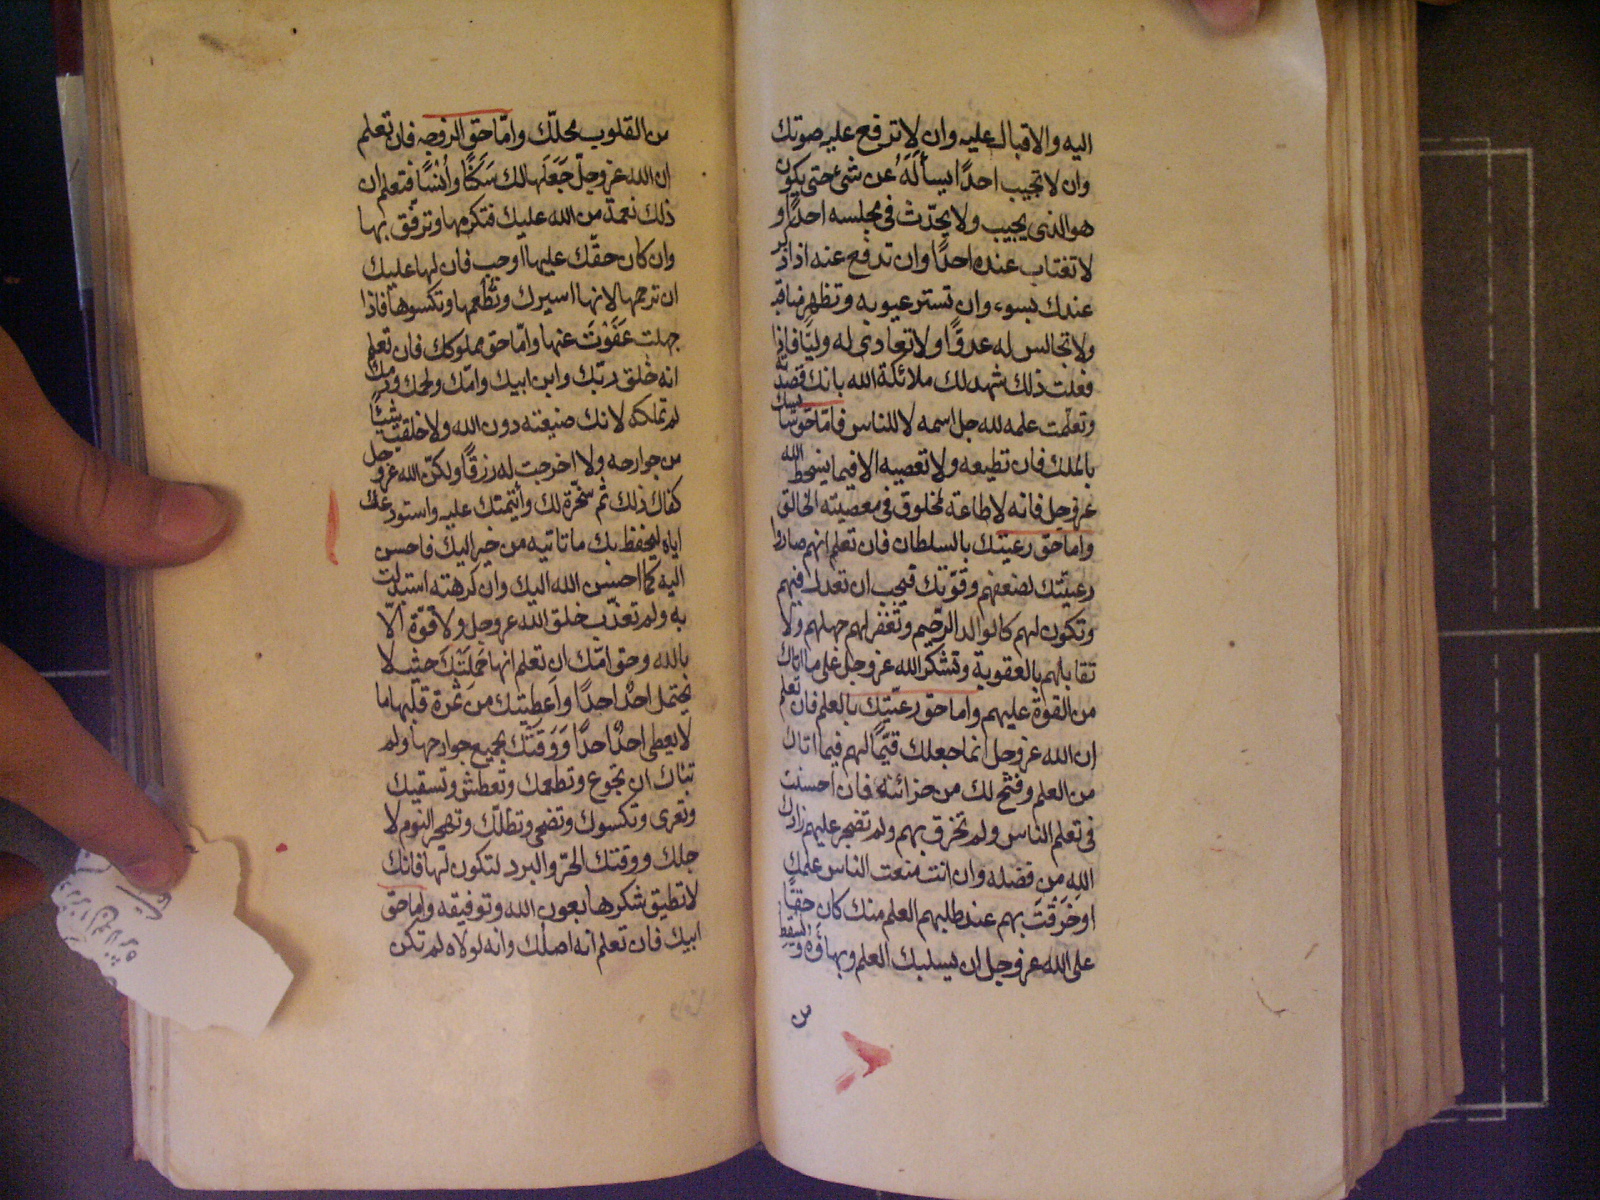 اليه والاقبال عليه وان لا ترفع عليه صوتك
وان لا تجيب احدًا يسأله عن شئ حتى يكون
هو الذى يجيب ولا يحدّث فى مجلسه احدًا و
لا تغتاب عنده احدًا وان تدفع عنه اذا ذكر
عندك بسوء وان تستر عيوبه وتظهر مناقبه
ولا تجالس له عدوًّا ولا تعادى له وليًّا فاذا
فعلت ذلك شهد لك ملائكة الله بانك قصدته
وتعلّمت علمه لله جل اسمه لا للناس فامّا حق سايسك
بالملك فان تطيعه ولا تعصيه الا فيما يسخط الله
عزوجل فانه لا طاعة لمخلوق فى معصيته الخالق
واما حق رعيتك بالسلطان فان تعلم انهم صاروا
رعيّتك لضعفهم وقوّتك فيجب ان تعدل فيهم
وتكون لهم كالوالد الرّحيم وتغفر لهم جهلهم ولا
تقابلهم بالعقوبة وتشكر الله عزوجل على ما اتاك
من القوة عليهم واما حق رعيّتك بالعلم فان تعلم
ان الله عزوجل انما جعلك قيّمًا لهم فيما اتاك
من العلم وفتح لك من خزائنه فان احسنت
فى تعلم الناس ولم تخرق بهم ولم تضجر عليهم زادك
الله من فضله وان انت منعت الناس علمك
او خرقت بهم عند طلبهم العلم منك كان حقًّا
على الله عزوجل ان يسلبك العلم وبهاؤه ويسقط
من
من القلوب محلّك وامّا حق الزوجه فان تعلم
ان الله عزوجلّ جَعَلَها لك سَكَنًا واُنْسًا فتعلم ان
ذلك نعمة من الله عليك فتكرمها وترفّق بها
وان كان حقّك عليها اوجب فان لها عليك
ان ترحمها لانها اسيرك وتُطْعمها وتكسوها فاذا
جهلت عَفَوْتَ عنها وامّا حق مملوكك فان تعلم
انه خلق ربّك وابن ابيك وامّك ولحمك ودمك
لم تملكه لانك صنيعته دون الله ولا خلقت شيئًا
من جوارحه ولا اخرجت له رزقًا ولكنّ الله عزوجل
كفاك ذلك ثم سخّرة لك وائتمنك عليه واستودعك
اياه ليحفظ بك ما تاتيه من خير اليك فاحسن
اليه كما احسن الله اليك وان كرهته استبدلت
به ولم تعذّب خلق الله عزوجل ولا قوّة الّا
بالله وحق امّك ان تعلم انها حَمَلَتْكَ حيث لا
يحتمل احدٌ احدًا واَعطيتك من ثمرة قلبها ما
لا يعطى احدٌ احدًا وَوَقَتْكَ بجميع جوارحها ولم
تبال ان تجوع وتطعمك وتعطش وتسقيك
وتعرى وتكسوك وتضحى وتظلّك وتهجر النوم لا
جلك ووقتك الحرّ والبرد لتكون لها فانك
لا تطيق شكرها بعون الله وتوفيقه واما حق
ابيك فان تعلم انه اصلك وانه لولاه لم تكن